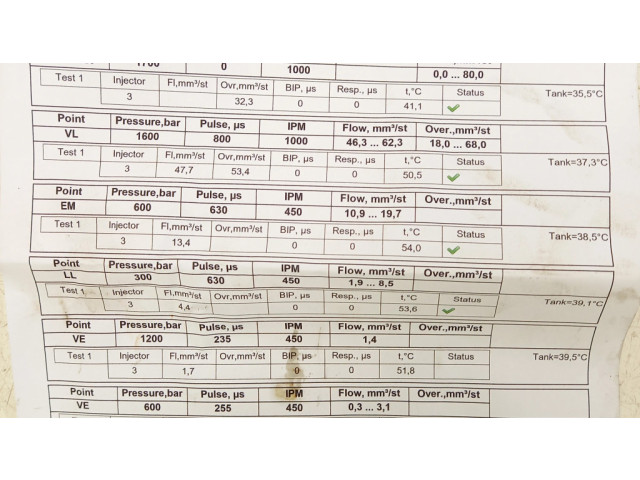 1700 0 1000 0,0 ... 80,0
Test 1 Injector Fl,mm³/st Ovr,mm³/st BIP, µs Resp., µs t,°C Status Tank=35,5°C
3 32,3 0 0 41,1
Point Pressure,bar Pulse, µs IPM Flow, mm³/st Over.,mm³/st
VL 1600 800 1000 46,3 ... 62,3 18,0 ... 68,0
Test 1 Injector Fl,mm³/st Ovr,mm³/st BIP, µs Resp., µs t,°C Status Tank=37,3°C
3 47,7 53,4 0 0 50,5
Point Pressure,bar Pulse, µs IPM Flow, mm³/st Over.,mm³/st
EM 600 630 450 10,9 ... 19,7
Test 1 Injector Fl,mm³/st Ovr,mm³/st BIP, µs Resp., µs t,°C Status Tank=38,5°C
3 13,4 0 0 54,0
Point Pressure,bar Pulse, µs IPM Flow, mm³/st Over.,mm³/st
LL 300 630 450 1,9 ... 8,5
Test 1 Injector Fl,mm³/st Ovr,mm³/st BIP, µs Resp., µs t,°C Status Tank=39,1°C
3 4,4 0 0 53,6
Point Pressure,bar Pulse, µs IPM Flow, mm³/st Over.,mm³/st
VE 1200 235 450 1,4
Test 1 Injector Fl,mm³/st Ovr,mm³/st BIP, µs Resp., µs t,°C Status Tank=39,5°C
3 1,7 0 0 51,8
Point Pressure,bar Pulse, µs IPM Flow, mm³/st Over.,mm³/st
VE 600 255 450 0,3 ... 3,1